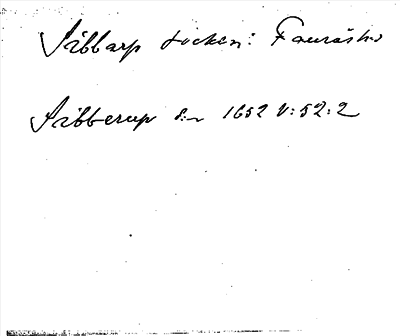 Säbbarp socken: Fauråsho
Säbberup s:n 1652 V:52:2